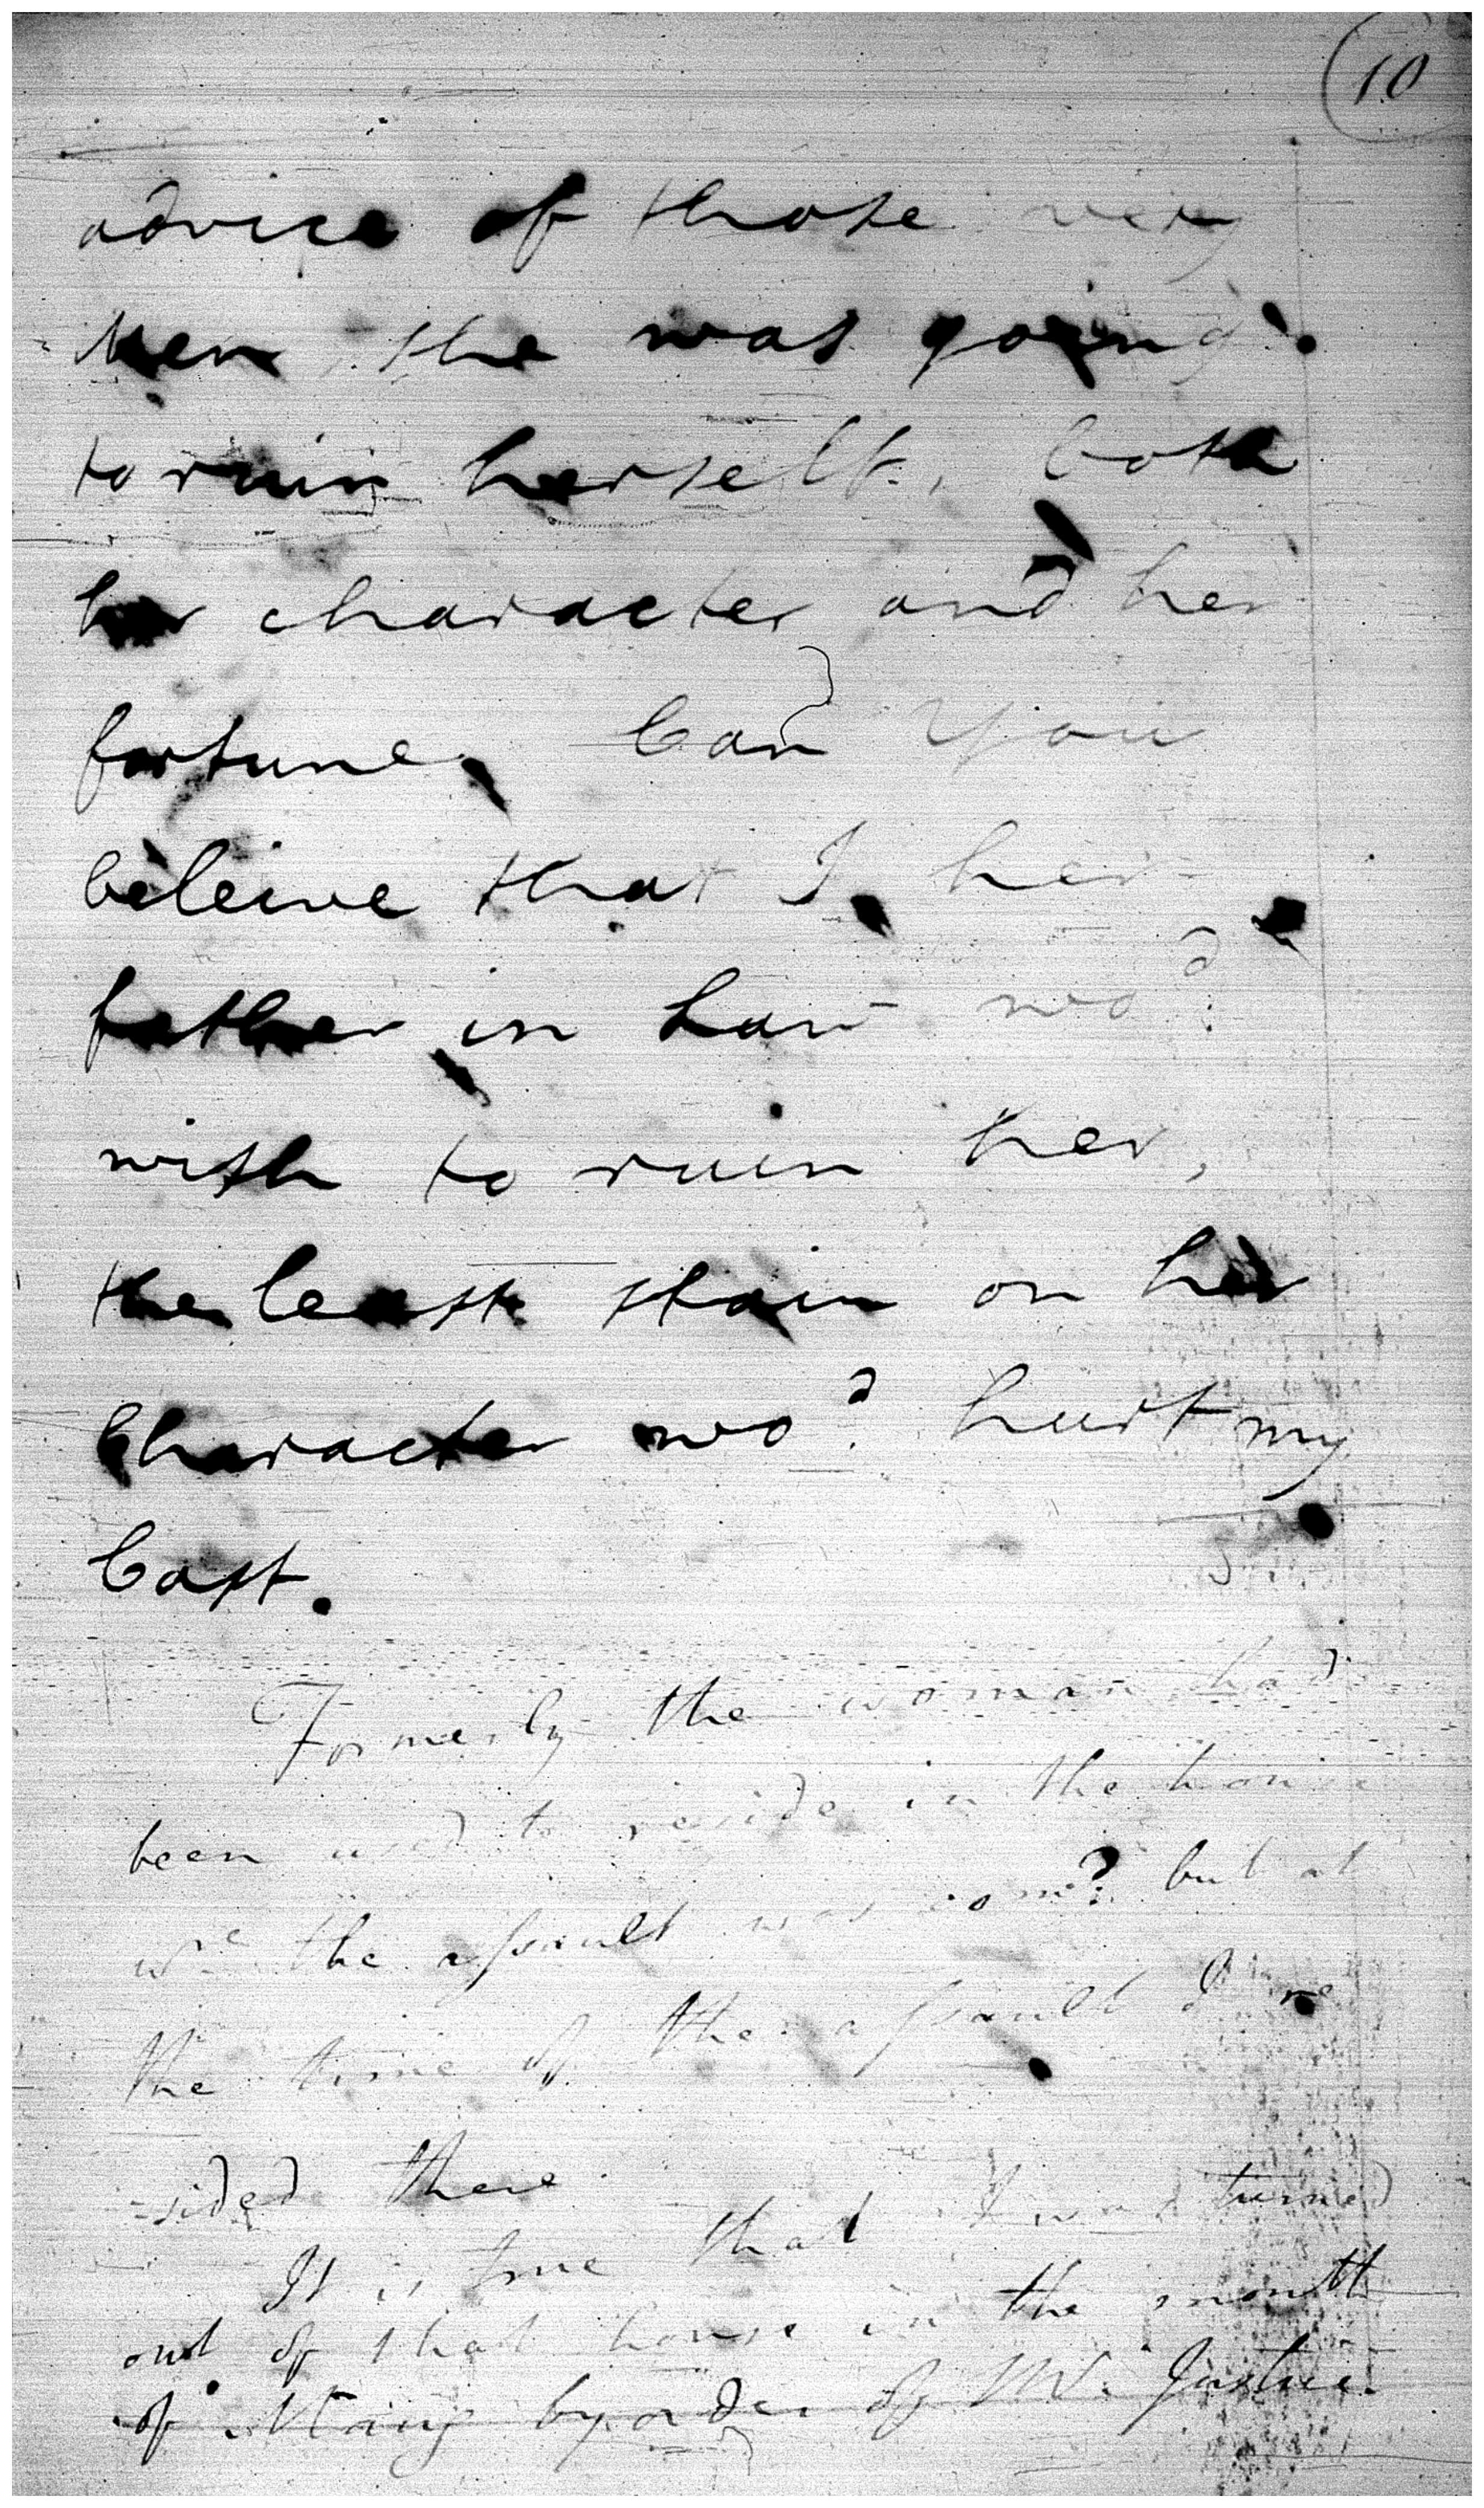 10
advice of those very
Men, she was going
to ruin herself, both
her character and her
fortune. Can you
beleive that I, her
father in Law wo.d
wish to ruin her,
the least stain on her
Character wo.d hurt my
Cast.
Formerly the woman had
been used to reside in the house
w.e the assault was com.d but at
the time of the assault I re
-sided there.
It is true that I was turned
out of that house in the month
of May by order of Mr. Justice